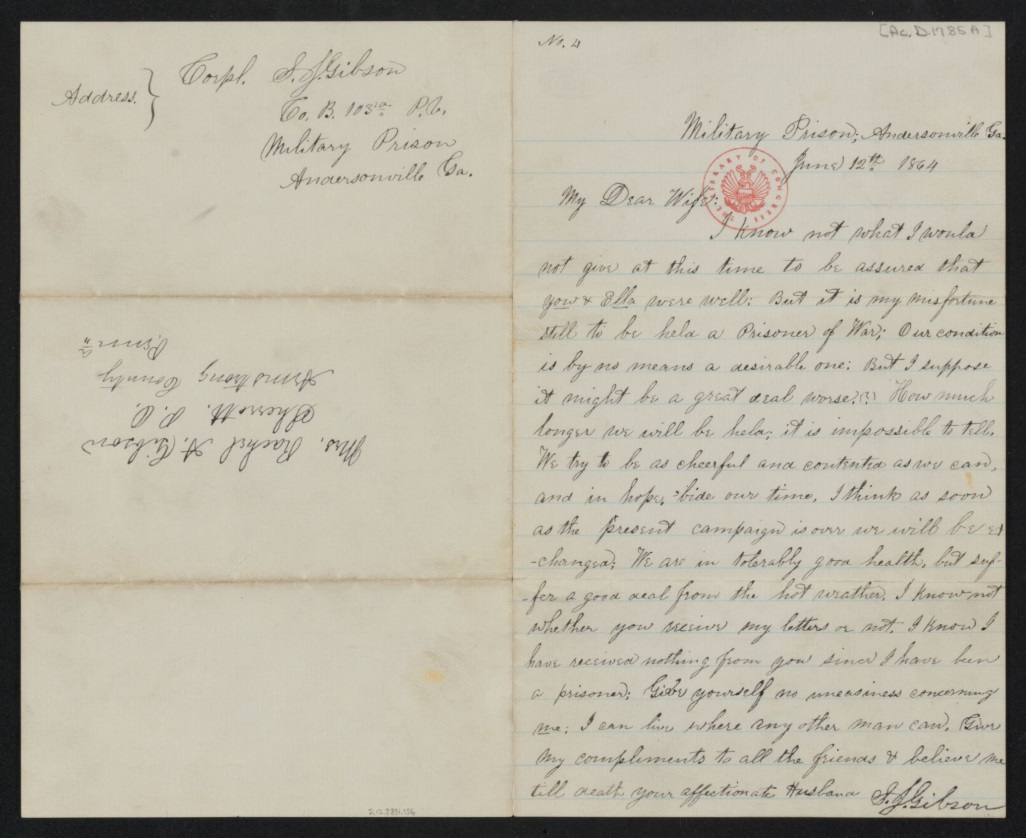 Address.
Corpl. S. J. Gibson
Co. B. 103rd P.V.
Military Prison
Andersonville Ga.
Mrs. Rachel A. Gibson
Sherrett. P.O.
Armstrong County
Penn"a
No. 4
[Ac. D. 1785 A]
Military Prison; Andersonville Ga.
June 12th 1864
THE LIBRARY OF CONGRESS
My Dear Wife:
I know not what I would
not give at this time to be assured that
you & Ella were well: But it is my misfortune
still to be held a Prisoner of War; Our condition
is by no means a desirable one: But I suppose
it might be a great deal worse?!! How much
longer we will be held; it is impossible to tell.
We try to be as cheerful and contented as we can,
and in hope, 'bide our time. I think as soon
as the present campaign is over we will be ex
-changed; We are in tolerably good health, but suf-
-fer a good deal from the hot weather. I know not
whether you receive my letters or not. I know I
have received nothing from you since I have been
a prisoner; Give yourself no uneasiness concerning
me: I can live where any other man can. Give
my compliments to all the friends & believe me
till death your affectionate Husband S. J. Gibson